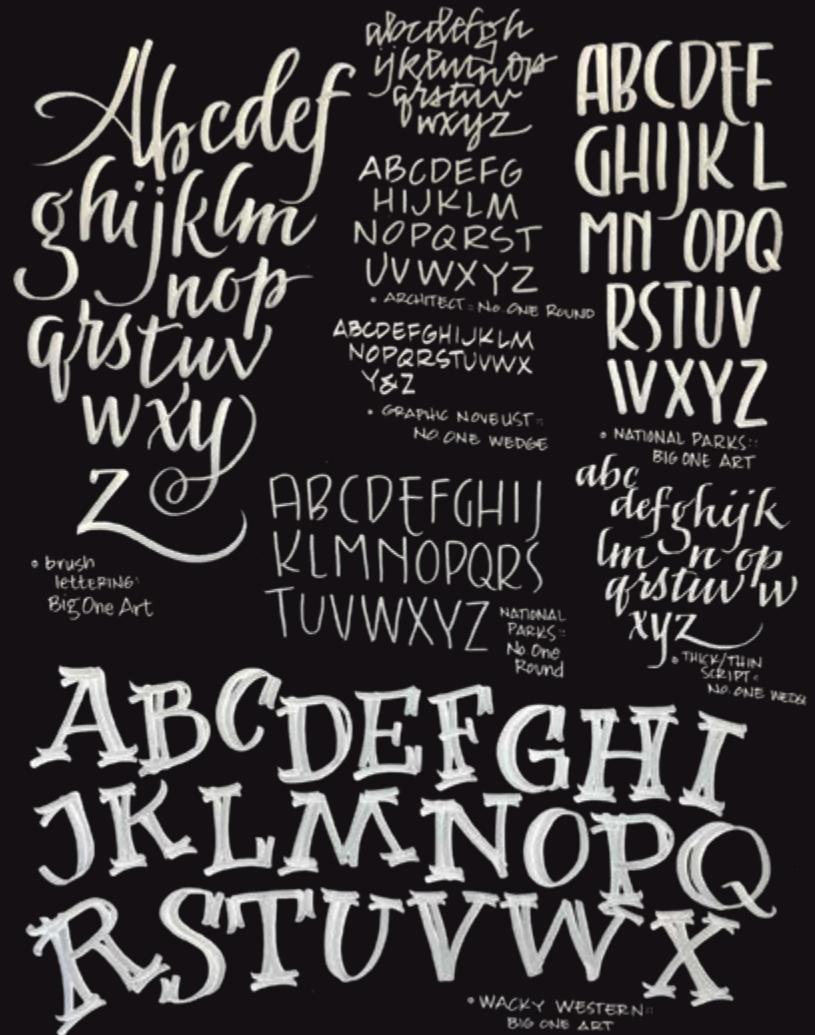 Abcdef
ghijklm
nop
qrstuv
wxy
z
• brush
lettering:
Big One Art
abcdefgh
ijklmnop
qrstuv
wxyz
ABCDEFG
HIJKLM
NOPQRST
UVWXYZ
• ARCHITECT:: No. ONE ROUND
ABCDEFGHIJKLM
NOPQRSTUVWX
Y&Z
• GRAPHIC NOVELIST::
NO. ONE WEDGE
ABCDEF
GHIJKL
MN OPQ
RSTUV
WXYZ
• NATIONAL PARKS::
BIG ONE ART
ABCDEFGHIJ
KLMNOPQRS
TUVWXYZ
NATIONAL
PARKS::
No One
Round
abc
defghijk
lm n op
qrstuv w
xyz
• THICK/THIN
SCRIPT::
NO. ONE WEDG
ABCDEFGHI
JKLMNOPQ
RSTUVWX
• WACKY WESTERN::
BIG ONE ART